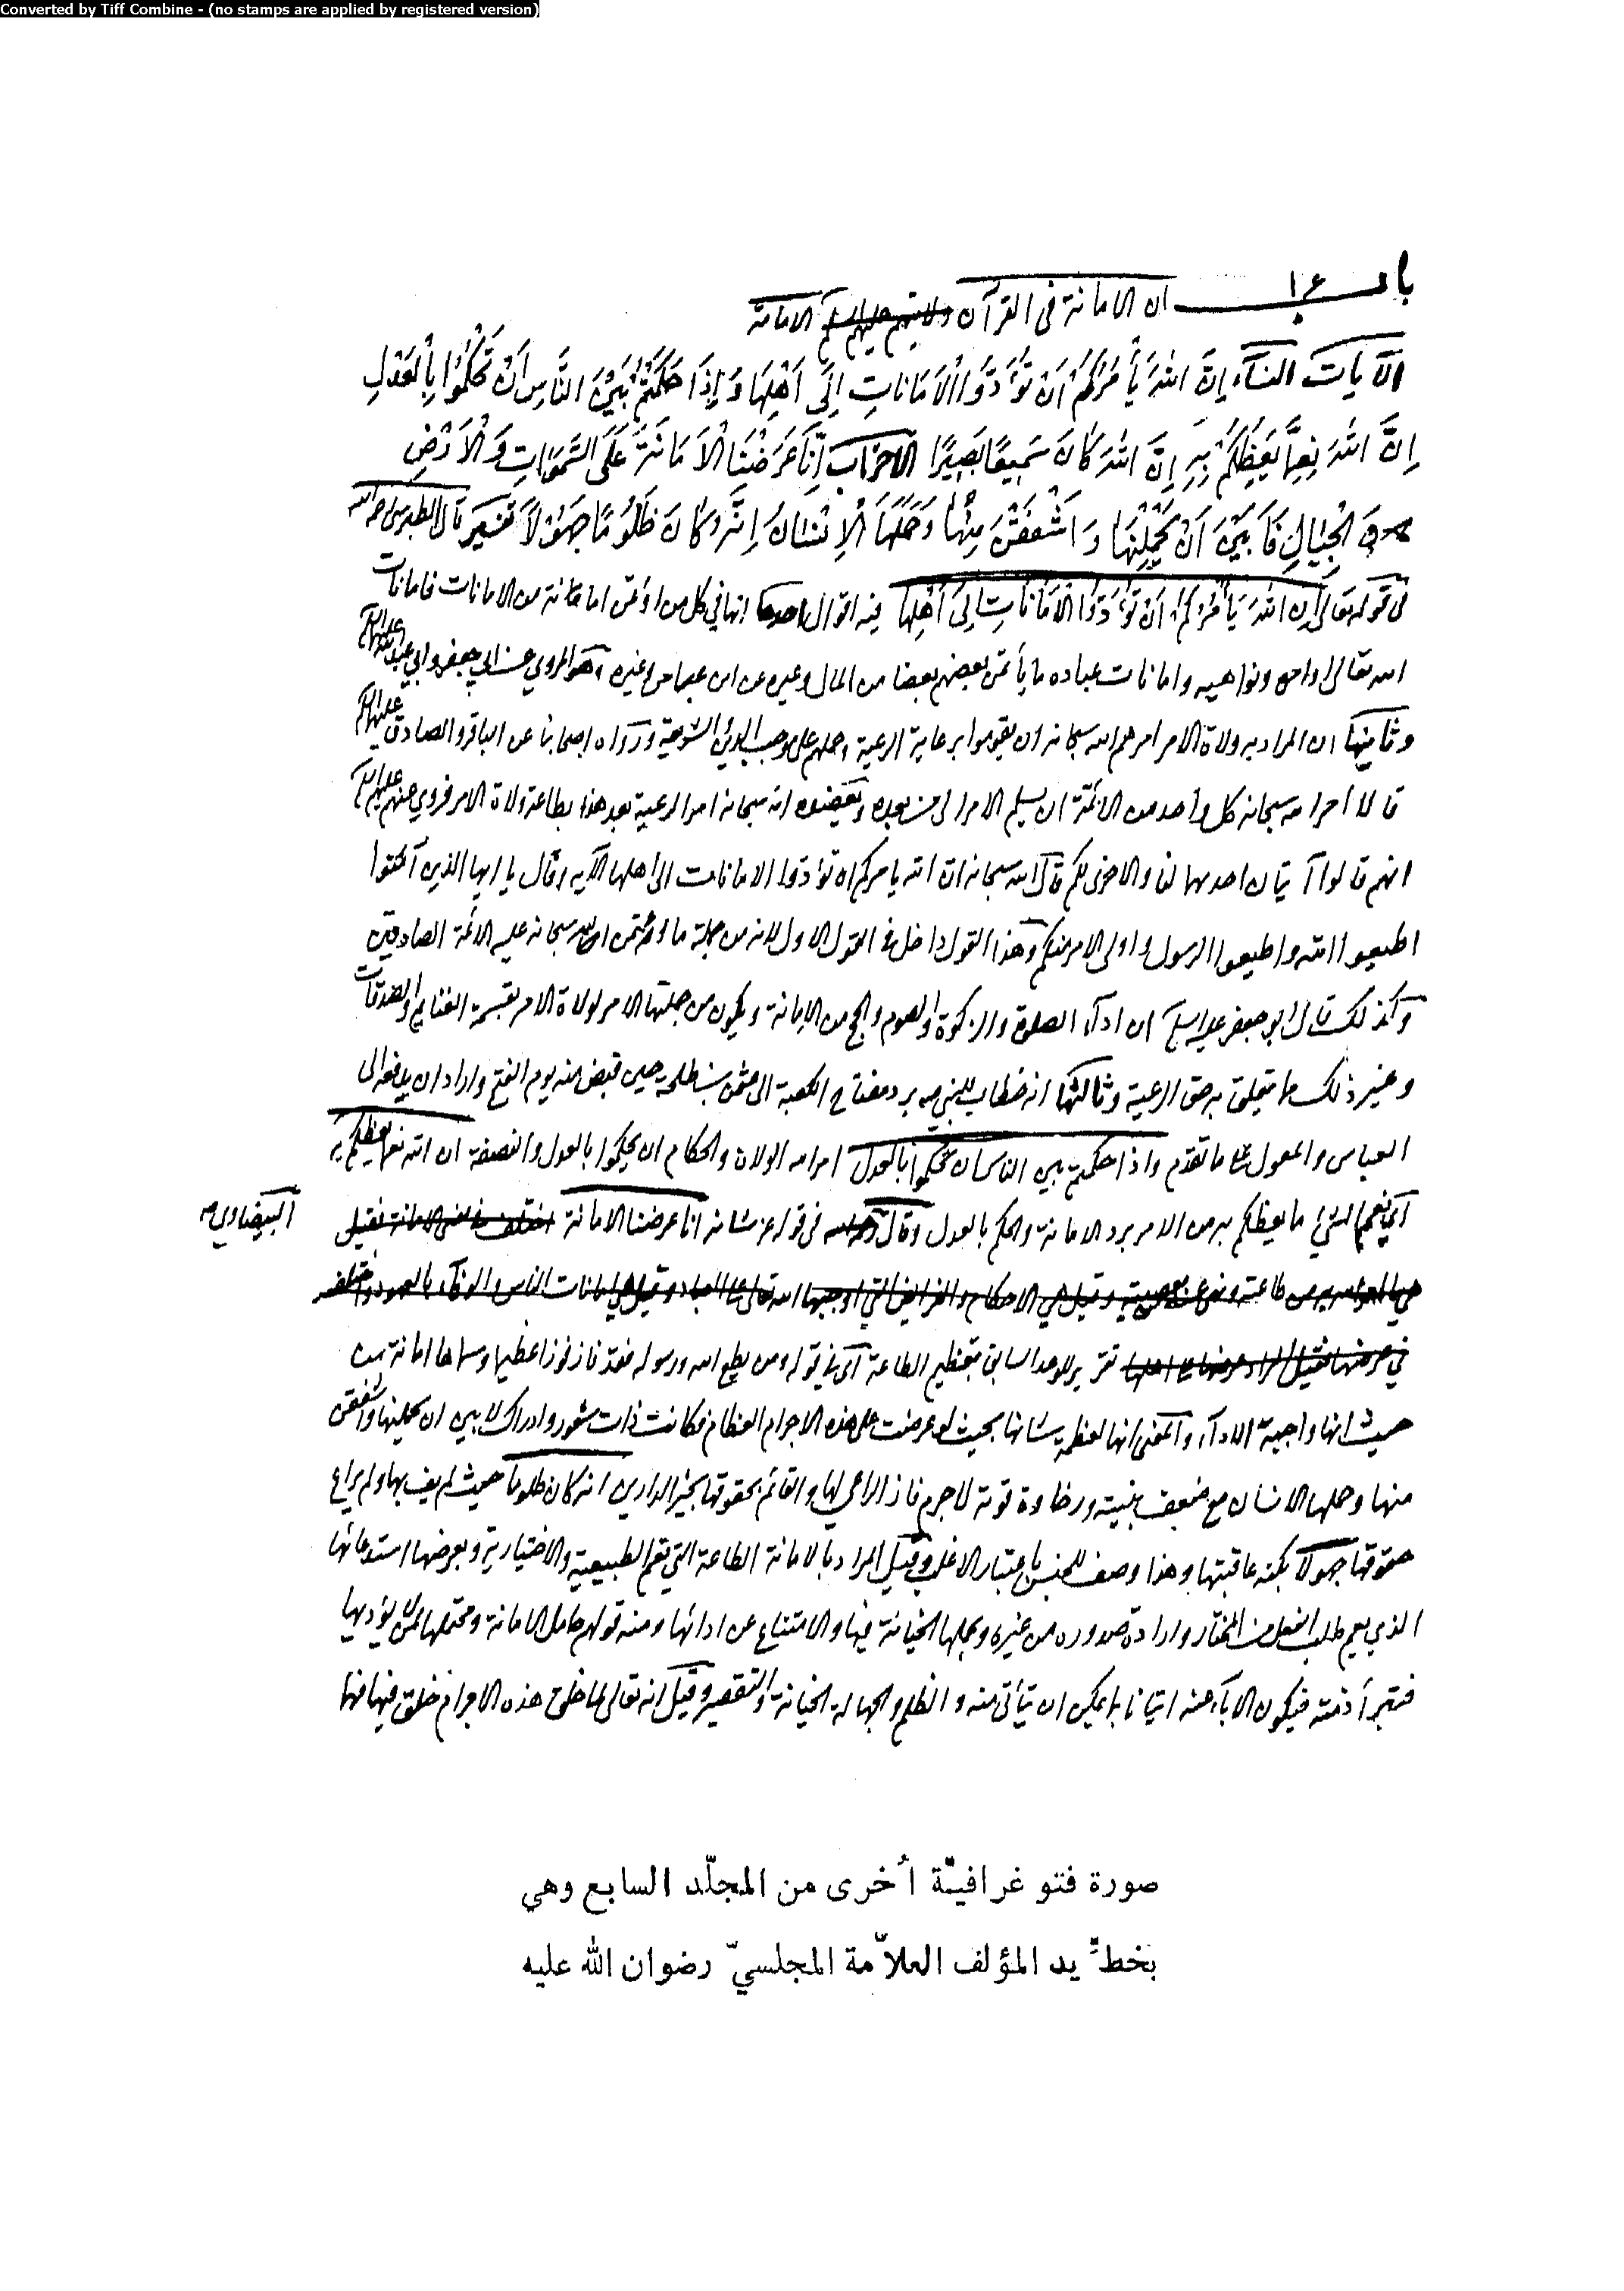 Converted by Tiff Combine - (no stamps are applied by registered version)
باب ١٦ ان الامانة في القرآن الامامة
الآيات النسآء إِنَّ اللهَ يَأْمُرُكُمْ أَنْ تُؤَدُّوا الْأَمَانَاتِ إِلَى أَهْلِهَا وَإِذَا حَكَمْتُمْ بَيْنَ النَّاسِ أَنْ تَحْكُمُوا بِالْعَدْلِ
إِنَّ اللهَ نِعِمَّا يَعِظُكُمْ بِهِ إِنَّ اللهَ كَانَ سَمِيعًا بَصِيرًا الاحزاب إِنَّا عَرَضْنَا الْأَمَانَةَ عَلَى السَّمَوَاتِ وَالْأَرْضِ
وَالْجِبَالِ فَأَبَيْنَ أَنْ يَحْمِلْنَهَا وَأَشْفَقْنَ مِنْهَا وَحَمَلَهَا الْإِنْسَانُ إِنَّهُ كَانَ ظَلُومًا جَهُولًا تفسير قال الطبرسي رحمه الله
في قوله تعالى إِنَّ اللهَ يَأْمُرُكُمْ أَنْ تُؤَدُّوا الْأَمَانَاتِ إِلَى أَهْلِهَا فيه اقوال احدها انها في كل من اؤتمن امانة من الامانات فامانات
الله تعالى اوامره ونواهيه وامانات عباده ما يأتمن بعضهم بعضا من المال وغيره عن ابن عباس وغيره وهو المروي عن ابي جعفر وابي عبد الله عليهما السلم
وثانيها ان المراد به ولاة الامر امرهم الله سبحانه ان يقوموا برعاية الرعية وحملهم على موجب الدين والشريعة ورواه اصحابنا عن الباقر والصادق عليهما السلم
قالا امر الله سبحانه كل واحد من الائمة ان يسلم الامر الى من بعده ويعضده انه سبحانه امر الرعية بعد هذا بطاعة ولاة الامر فروي عنهم عليهم السلم
انهم قالوا آيتان احدهما لنا والاخرى لكم قال الله سبحانه ان الله يامركم ان تؤدوا الامانات الى اهلها الآية وقال يا ايها الذين آمنوا
اطيعوا الله واطيعوا الرسول واولى الامر منكم وهذا القول داخل في القول الاول لانه من جملة ما اؤتمن الله سبحانه عليه الائمة الصادقين
وكذلك قال ابو جعفر عليه السلم ان ادآء الصلوة والزكوة والصوم والحج من الامانة ويكون من جملتها الامر لولاة الامر بقسمة الغنايم والصدقات
وغير ذلك مما يتعلق به حق الرعية وثالثها انه خطاب للنبي ص برد مفتاح الكعبة الى عثمن بن طلحة حين قبض منه يوم الفتح واراد ان يدفعه الى
العباس والمعول على ما تقدم واذا حكمتم بين الناس ان تحكموا بالعدل امر الله الولاة والحكام ان يحكموا بالعدل والنصفة ان الله نعما يعظكم به
اي نعم الشئ ما يعظكم به من الامر برد الامانة والحكم بالعدل وقال البيضاوي في قوله عز شانه انا عرضنا الامانة
تقرير للوعد السابق بتعظيم الطاعة اي في قوله ومن يطع الله ورسوله فقد فاز فوزا عظيما وسماها امانة من
حيث انها واجبة الادآء والمعنى انها لعظمة شانها بحيث لو عرضت على هذه الاجرام العظام فكانت ذات شعور وادراك لابين ان يحملنها واشفقن
منها وحملها الانسان مع ضعف بنيته ورخاوة قوته لا جرم فاز الراعي لها والقائم بحقوقها بخير الدارين انه كان ظلوما حيث لم يف بها ولم يراع
حقوقها جهولا بكنه عاقبتها وهذا وصف للجنس باعتبار الاغلب وقيل المراد بالامانة الطاعة التي تعم الطبيعية والاختيارية وبعرضها استدعائها
الذي يعم طلب الفعل من المختار وارادة صدوره من غيره وبحملها الخيانة فيها والامتناع عن ادائها ومنه قولهم حامل الامانة ومحتملها لمن لا يؤديها
فتبرأ ذمته فيكون الابآء عنه اتيانا بما يمكن ان يتأتى منه والظلم والجهالة الخيانة والتقصير وقيل انه تعالى لما خلق هذه الاجرام خلق فيها فهما
صورة فتو غرافيّة أخرى من المجلّد السابع وهي
بخطّ يد المؤلف العلاّمة المجلسيّ رضوان الله عليه